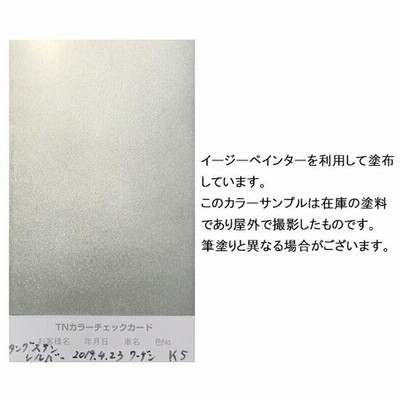 イージーペインターを利用して塗布
しています。
このカラーサンプルは在庫の塗料
であり屋外で撮影したものです。
筆塗りと異なる場合がございます。
TNカラーチェックカード
お客様名 年月日 車名 色No.
タングステン
シルバー 2019.4.23 ワーゲン K5